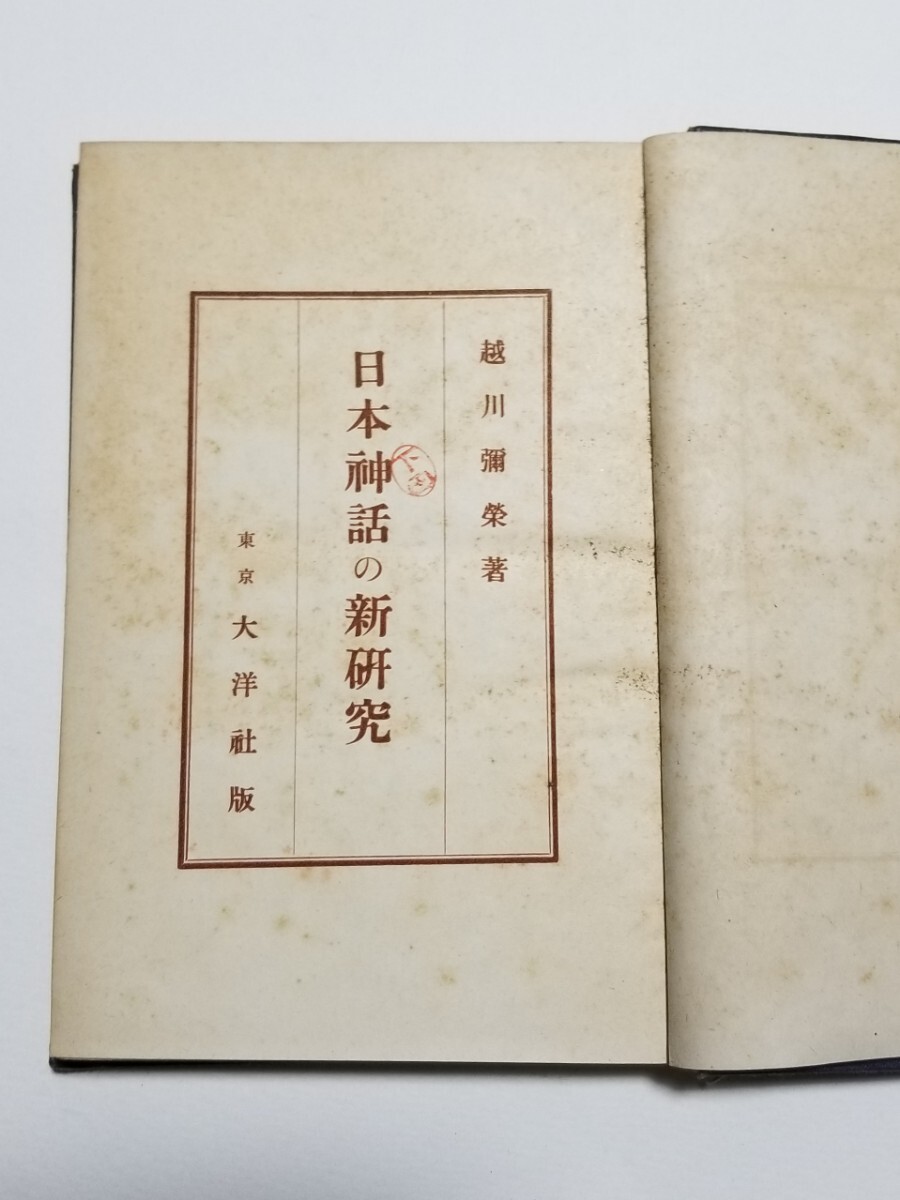 越川彌榮著
日本神話の新硏究
東京 大洋社版